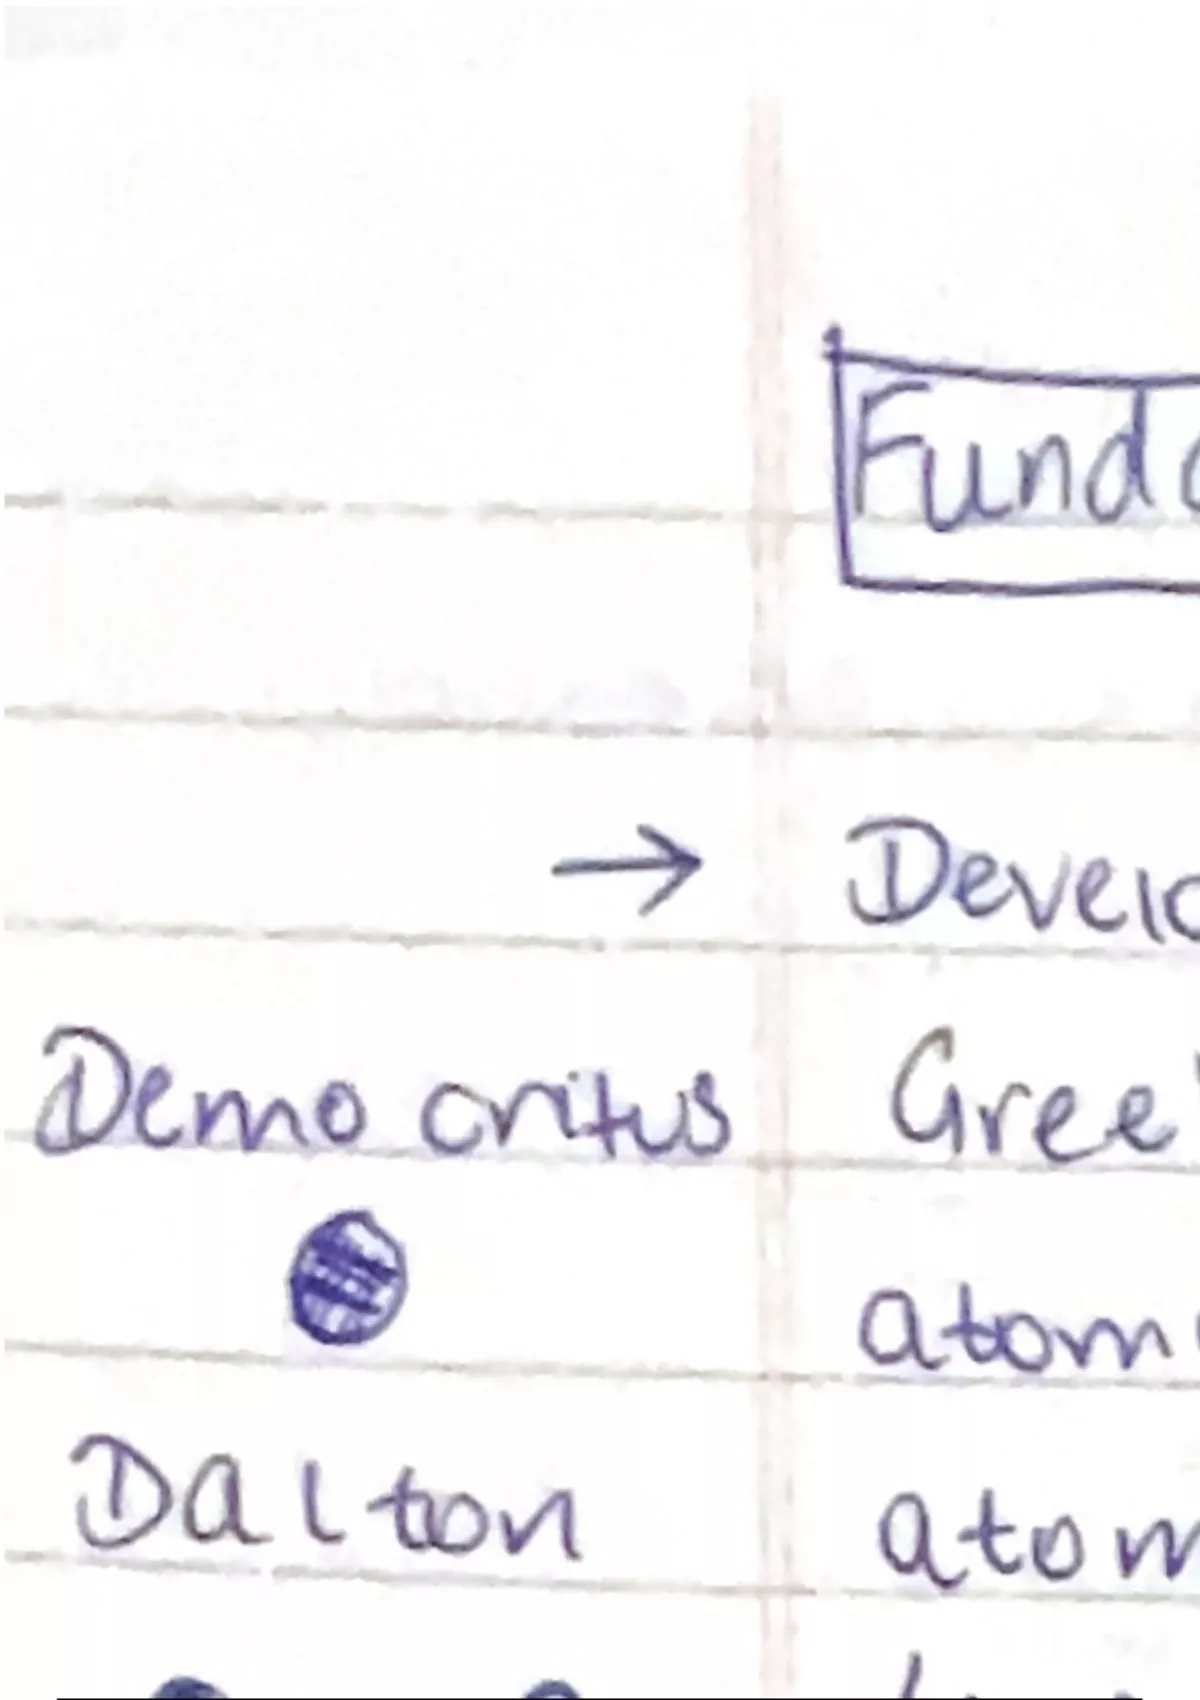 Funda
→ Develo
Demo critus Greek
atom
Dalton atom